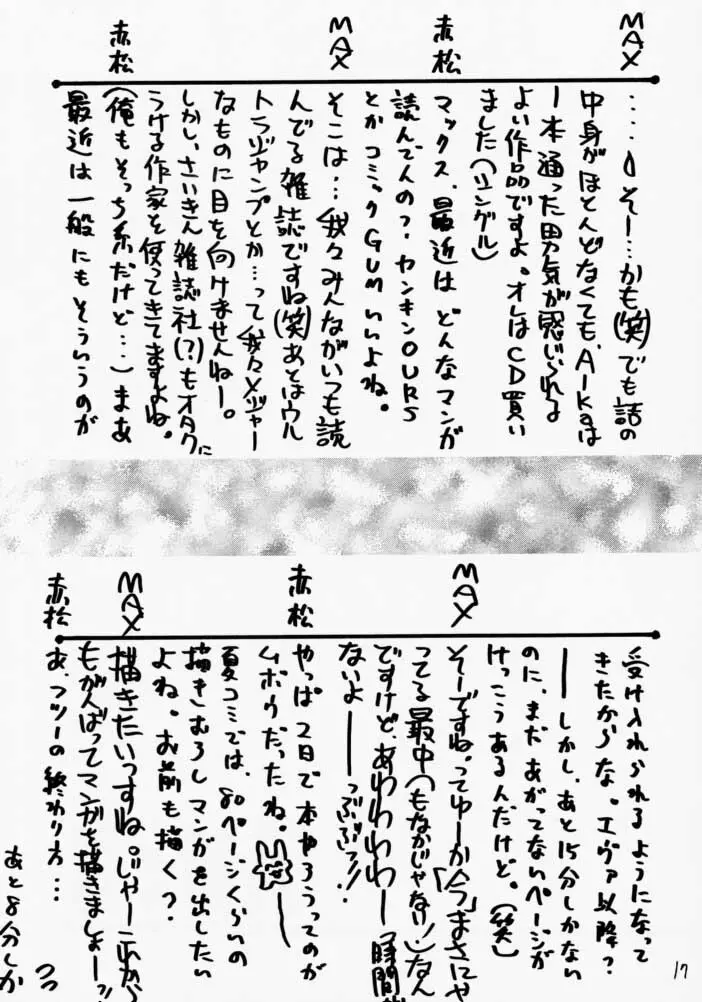 MAX
‥‥うそー‥‥かも(笑)でも話の
中身がほとんどなくても、AIKaは
一本通った男気が感じられる
よい作品ですよ。オレはCD買い
ました(シングル)
赤松
マックス、最近はどんなマンガ
読んでんの?ヤンキンOURS
とかコミックGUMいいよね。
MAX
そこは‥‥我々みんながいつも読
んでる雑誌ですね(笑)あとはウル
トラジャンプとか‥‥って我々メジャー
なものに目を向けませんねー。
赤松
しかし、さいきん雑誌社(?)もオタクに
うける作家を使ってきてますよね。
(俺もそっち系だけど‥‥)まあ
最近は一般にもそういうのが
受け入れられるようになって
きたからな。エヴァ以降?
――しかし、あと15分しかない
のに、まだあがってないページが
けっこうあるんだけど。(笑)
MAX
そーですね。ってゆーか「今」まさにや
ってる最中(もなかじゃない!)なん
ですけど、あわわわわー時間が
ないよ――っぶぶっ!!
赤松
やっぱ2日で本やろうってのが
ムボウだったね。――
夏コミでは、80ページくらいの
描きむろしマンガを出したい
よね。お前も描く?
MAX
描きたいっすね。じゃーこれから
もがんばってマンガを描きましょーっ!!
赤松
あ、フツーの終わり方‥‥
あと8分しか
17